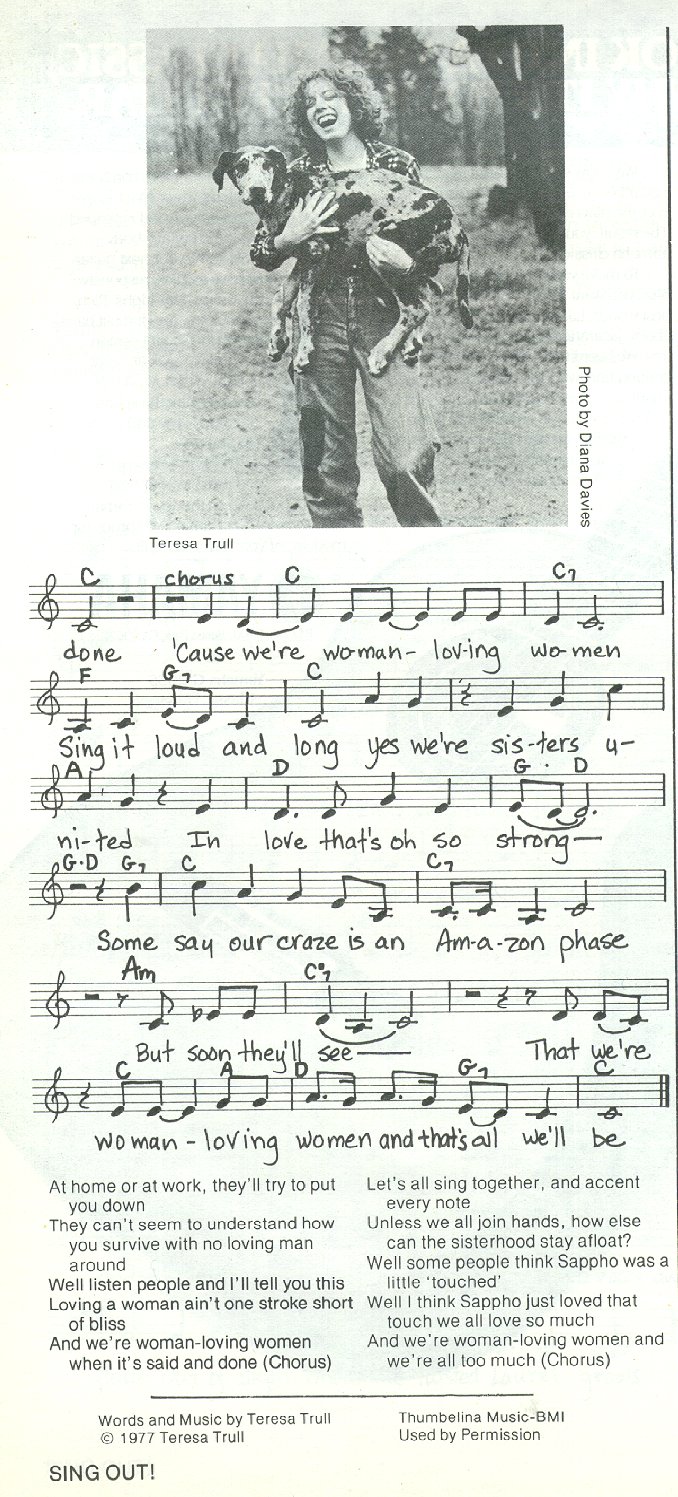 Photo by Diana Davies
Teresa Trull
C chorus C C7
done 'Cause we're wo-man- lov-ing wo-men
F G7 C
Sing it loud and long yes we're sis-ters u-
A D G · D
ni-ted In love that's oh so strong—
G·D G7 C C7
Some say our craze is an Am-a-zon phase
Am C°7
But soon they'll see— That we're
C A D G7 C
wo man - loving women and that's all we'll be
At home or at work, they'll try to put
you down
They can't seem to understand how
you survive with no loving man
around
Well listen people and I'll tell you this
Loving a woman ain't one stroke short
of bliss
And we're woman-loving women
when it's said and done (Chorus)
Let's all sing together, and accent
every note
Unless we all join hands, how else
can the sisterhood stay afloat?
Well some people think Sappho was a
little 'touched'
Well I think Sappho just loved that
touch we all love so much
And we're woman-loving women and
we're all too much (Chorus)
Words and Music by Teresa Trull
© 1977 Teresa Trull
Thumbelina Music-BMI
Used by Permission
SING OUT!